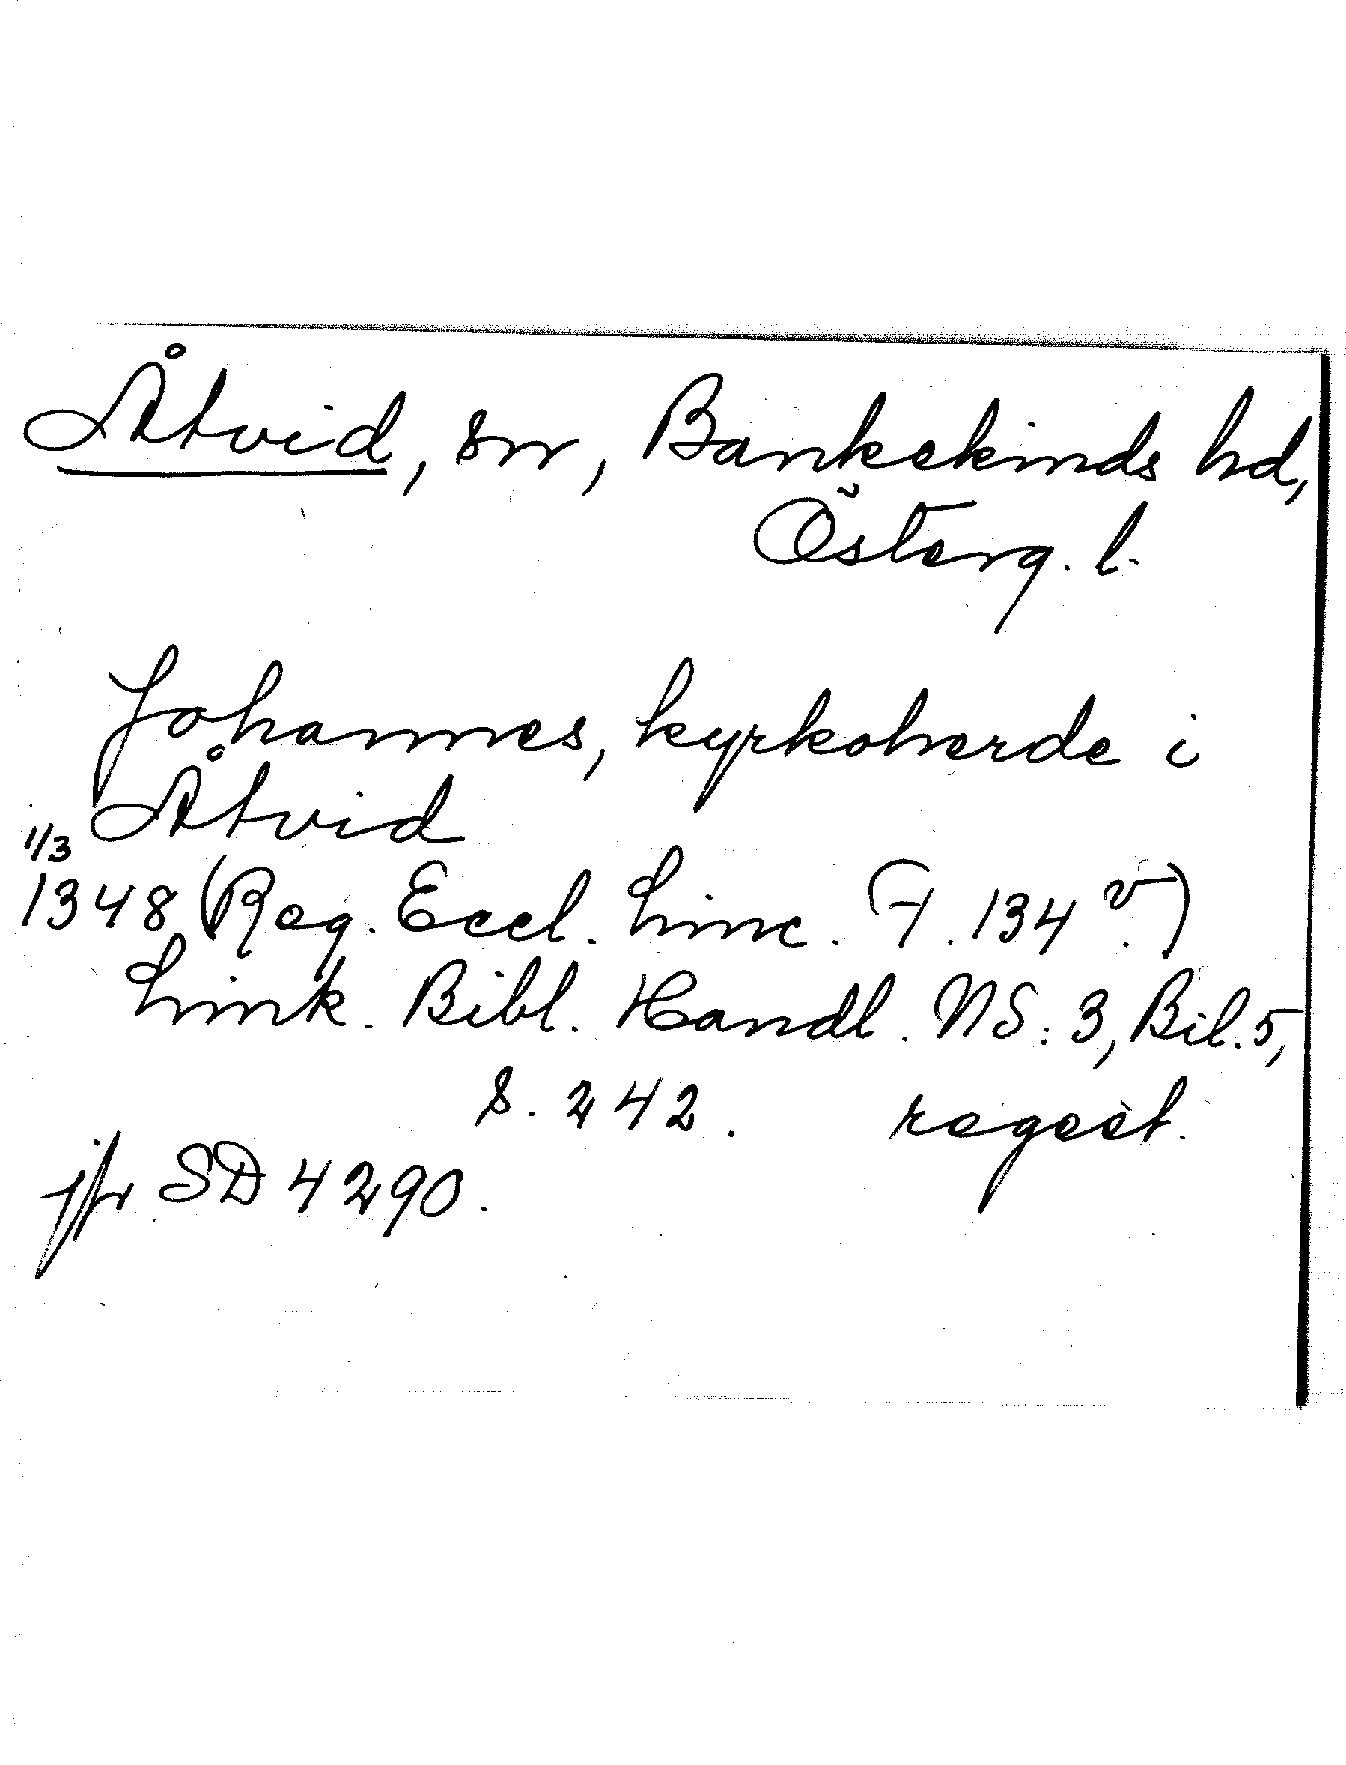 Åtvid, sn, Bankekinds hd,
Österg. l.
Johannes, kyrkoherde i
Åtvid
1/3
1348 (Reg. Eccl. Linc. F. 134 v.)
Link. Bibl. Handl. NS: 3, Bil. 5,
s. 242. regest.
jfr SD 4290.